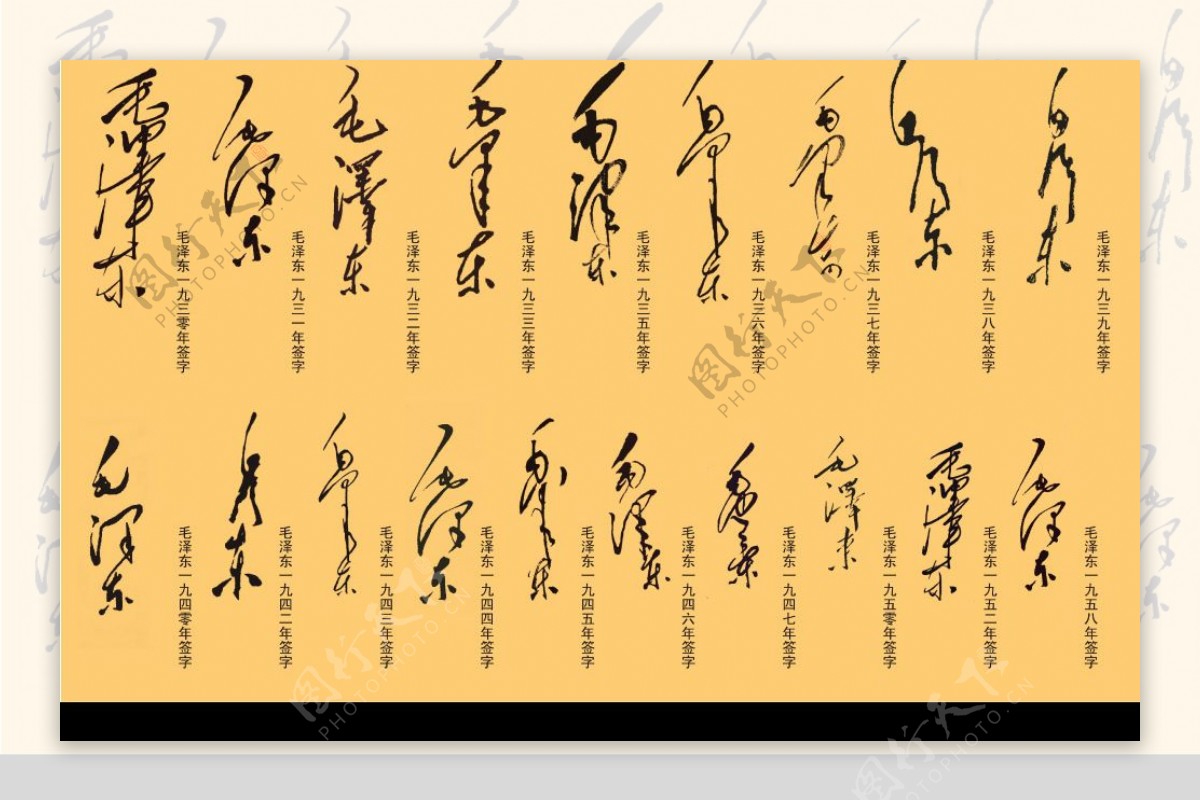 毛泽东
毛泽东一九三零年签字
毛泽东
毛泽东一九三一年签字
毛澤东
毛泽东一九三二年签字
毛泽东
毛泽东一九三三年签字
毛泽东
毛泽东一九三五年签字
毛泽东
毛泽东一九三六年签字
毛泽东
毛泽东一九三七年签字
毛泽东
毛泽东一九三八年签字
毛泽东
毛泽东一九三九年签字
毛泽东
毛泽东一九四零年签字
毛泽东
毛泽东一九四二年签字
毛泽东
毛泽东一九四三年签字
毛泽东
毛泽东一九四四年签字
毛泽东
毛泽东一九四五年签字
毛泽东
毛泽东一九四六年签字
毛泽东
毛泽东一九四七年签字
毛澤东
毛泽东一九五零年签字
毛泽东
毛泽东一九五二年签字
毛泽东
毛泽东一九五八年签字
图行天下
PHOTOPHOTO.CN
图行天下
PHOTOPHOTO.CN
图行天下
PHOTOPHOTO.CN
图行天下
PHOTOPHOTO.CN